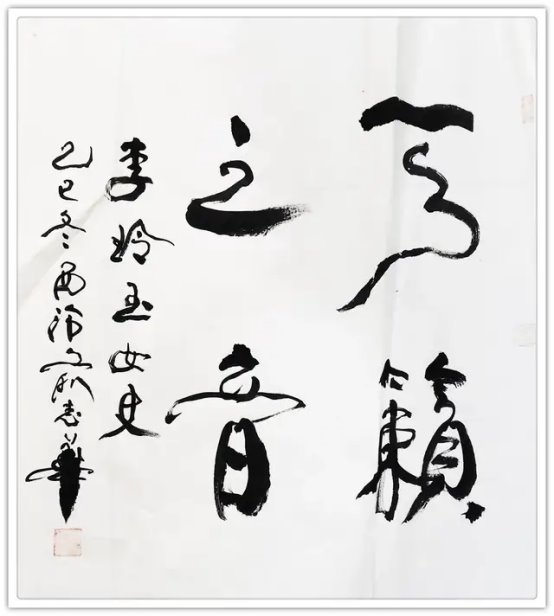 天籟
之音
李玲玉女史
乙巳冬西泠志華